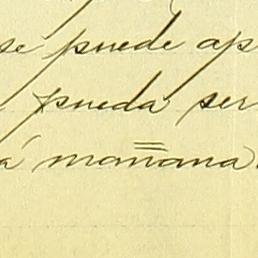 se puede ap
pueda ser
á mañana.